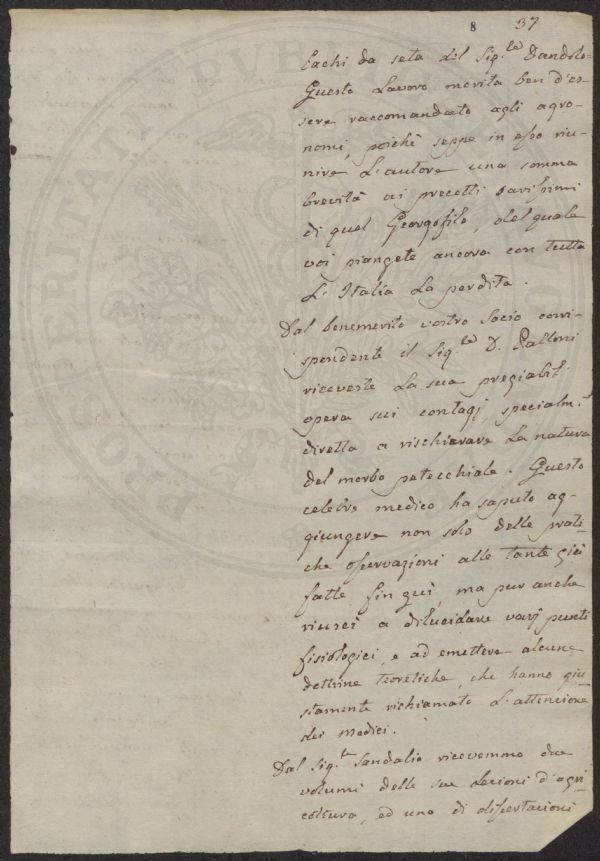 8 37
bachi da seta del Sig.re Dandolo.
Questo Lavoro merita ben d'es-
sere raccomandato agli agro-
nomi, poichè seppe in esso riu-
nire L'autore una somma
brevità ai precetti savissimi
di quel Georgofilo, del quale
voi piangete ancora con tutta
L'Italia La perdita.
Dal benemerito vostro Socio corri-
spondente il Sig.re D. Palloni
riceveste La sua pregiabil.
opera sui contagj, specialm.e
diretta a rischiarare La natura
del morbo petecchiale. Questo
celebre medico ha saputo ag-
giungere non solo delle prati-
che osservazioni alle tante giá
fatte fin quì, ma pur anche
riuscì a dilucidare varj punti
fisiologici, e ad emettere alcune
dottrine teoretiche, che hanno giu-
stamente richiamato L'attenzione
dei Medici.
Dal Sig.re Sandalio ricevemmo due
volumi delle sue Lezioni d'agri-
coltura, ed uno di dissertazioni
PROSPERITATI PUBLICAE